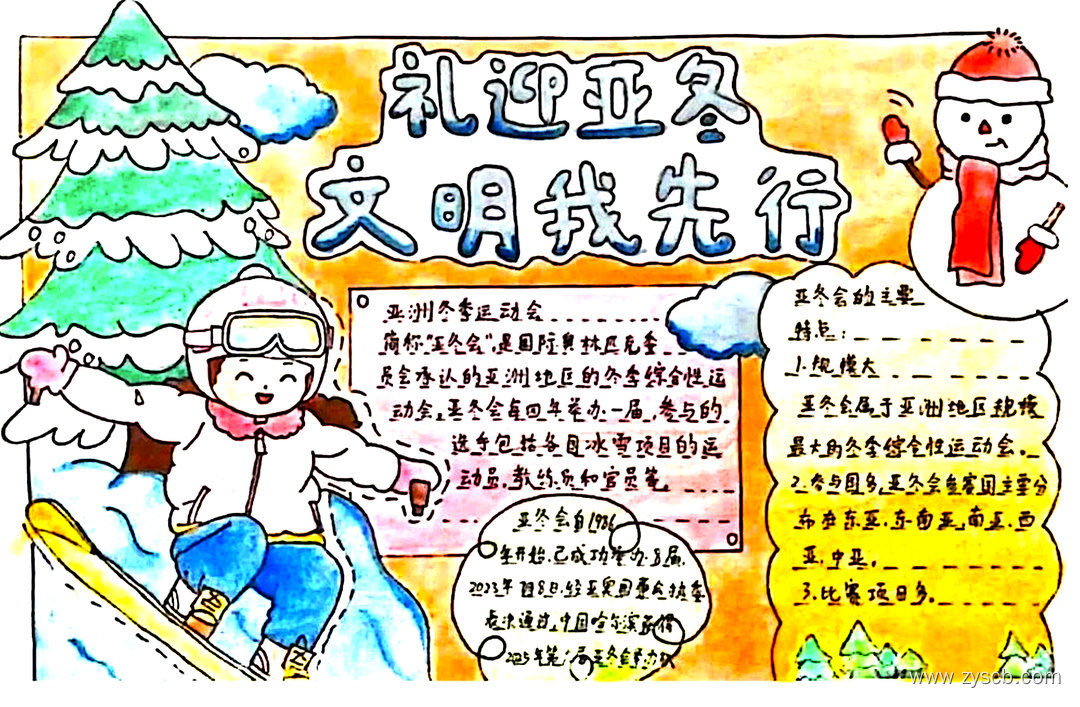 礼迎亚冬
文明我先行
亚洲冬季运动会
简称"亚冬会",是国际奥林匹克委
员会承认的亚洲地区的冬季综合性运
动会。亚冬会每四年举办一届,参与的
选手包括各国冰雪项目的运
动员、教练员和官员等。
亚冬会自1986
年开始,已成功举办8届,
2023年7月8日,经亚奥
表决通过,中国哈尔滨获得
2025年第九届亚冬会举办权
亚冬会的主要
特点:
1.规模大
亚冬会属于亚洲地区规模
最大的冬季综合性运动会。
2.参与国多,亚冬会参赛国主要分
布在东亚、东南亚、南亚、西
亚、中亚。
3.比赛项目多。
www.zyscb.com